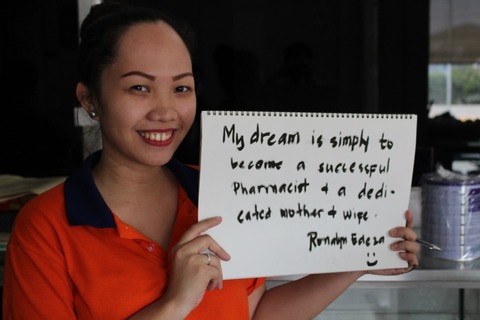 My dream is simply to
become a successful
Pharmacist & a dedi-
cated mother & wife.
Ronalyn Edeza